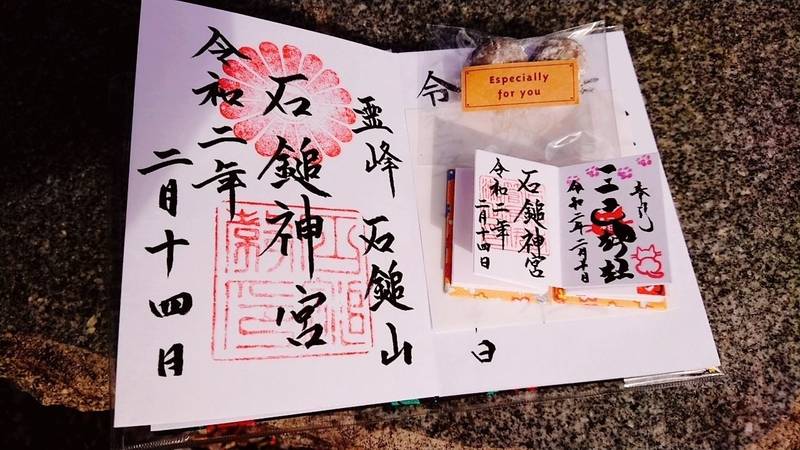 霊峰 石鎚山
石鎚神宮
令和二年
二月十四日
令
日
Especially
for you
石鎚神宮
令和二年
二月十四日
令和二年二月十日